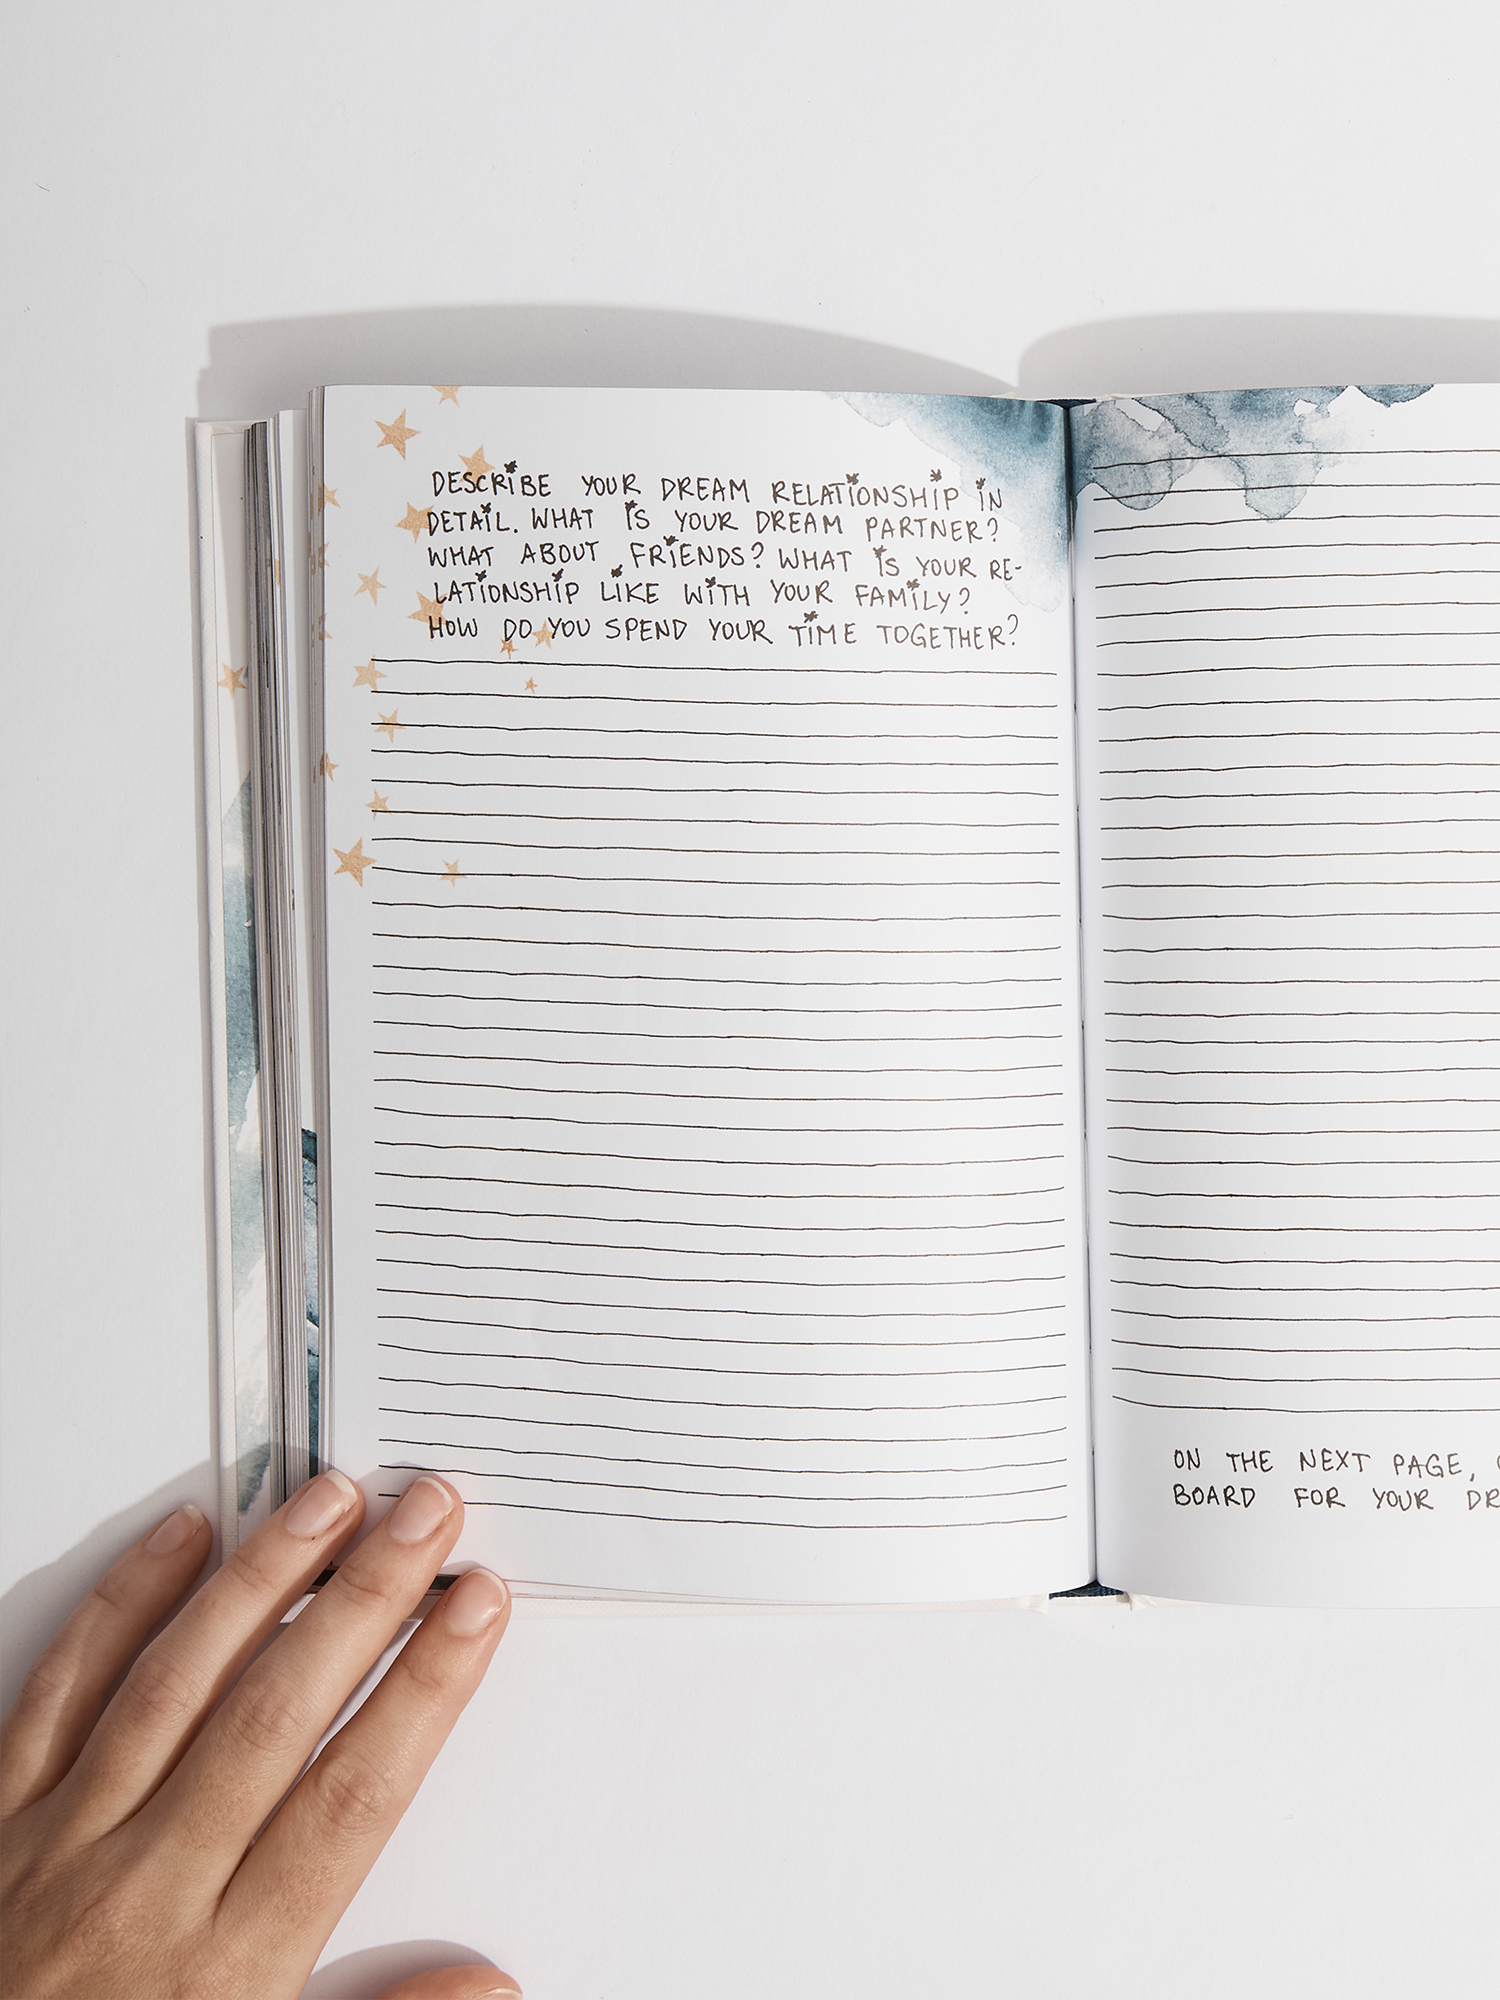 DESCRIBE YOUR DREAM RELATIONSHIP IN
DETAIL. WHAT IS YOUR DREAM PARTNER?
WHAT ABOUT FRIENDS? WHAT IS YOUR RE-
LATIONSHIP LIKE WITH YOUR FAMILY?
HOW DO YOU SPEND YOUR TIME TOGETHER?
ON THE NEXT PAGE,
BOARD FOR YOUR